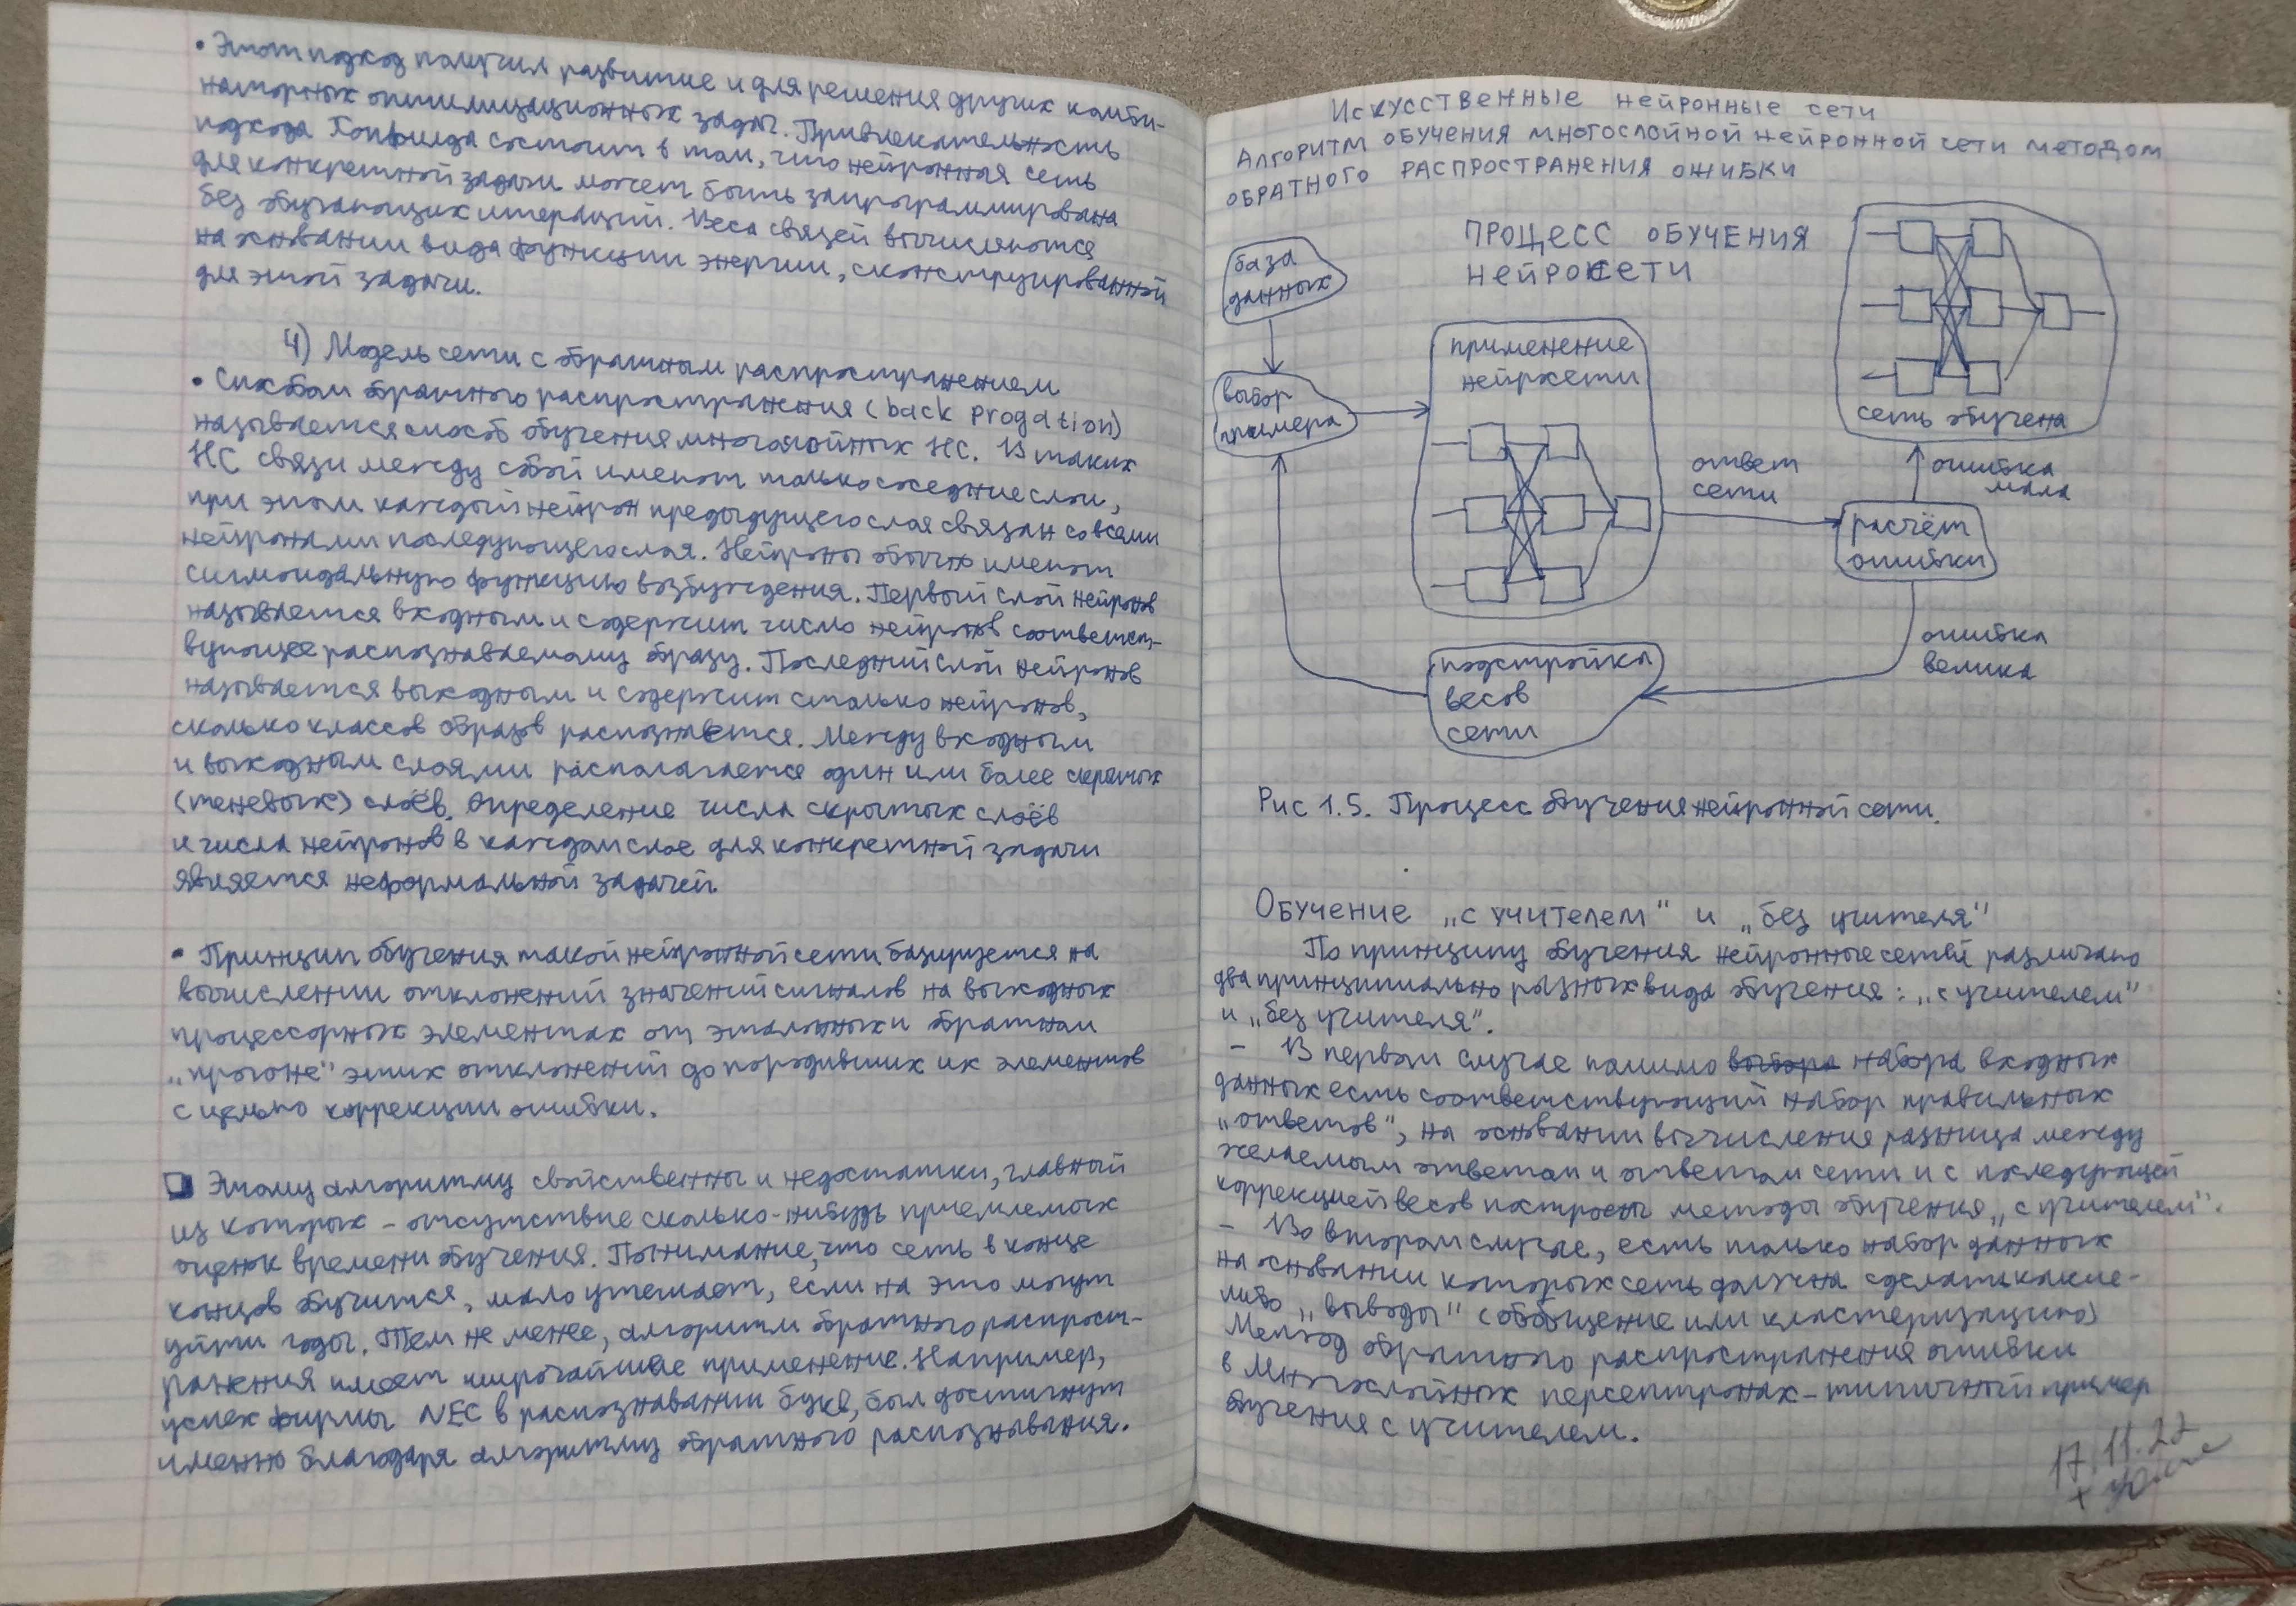 • Этот подход получил развитие и для решения других комби-
наторных оптимизационных задач. Привлекательность
подхода Хопфилда состоит в том, что нейронная сеть
для конкретной задачи может быть запрограммирована
без обучающих итераций. Веса связей вычисляются
на основании вида функции энергии, сконструированной
для этой задачи.
4) Модель сети с обратным распространением
• Способом обратного распространения (back progation)
называется способ обучения многослойных НС. В таких
НС связи между собой имеют только соседние слои,
при этом каждый нейрон предыдущего слоя связан со всеми
нейронами последующего слоя. Нейроны обычно имеют
сигмоидальную функцию возбуждения. Первый слой нейронов
называется входным и содержит число нейронов соответст-
вующее распознаваемому образу. Последний слой нейронов
называется выходным и содержит столько нейронов,
сколько классов образов распознается. Между входным
и выходным слоями располагается один или более скрытых
(теневых) слоёв. Определение числа скрытых слоёв
и числа нейронов в каждом слое для конкретной задачи
является неформальной задачей.
• Принцип обучения такой нейронной сети базируется на
вычислении отклонений значений сигналов на выходных
процессорных элементах от эталонных и обратном
„прогоне" этих отклонений до породивших их элементов
с целью коррекции ошибки.
Этому алгоритму свойственны и недостатки, главный
из которых - отсутствие сколько-нибудь приемлемых
оценок времени обучения. Понимание, что сеть в конце
концов обучится, мало утешает, если на это могут
уйти годы. Тем не менее, алгоритм обратного распрост-
ранения имеет широчайшее применение. Например,
успех фирмы NEC в распознавании букв, был достигнут
именно благодаря алгоритму обратного распознавания.
Искусственные нейронные сети
Алгоритм обучения многослойной нейронной сети методом
обратного распространения ошибки
ПРОЦЕСС ОБУЧЕНИЯ
НЕЙРОСЕТИ
база
данных
выбор
примера
применение
нейросети
ответ
сети
сеть обучена
ошибка
мала
расчёт
ошибки
ошибка
велика
подстройка
весов
сети
Рис 1.5. Процесс обучения нейронной сети.
Обучение „с учителем" и „без учителя"
По принципу обучения нейронные сетей различаю
два принципиально разных вида обучения: „с учителем"
и „без учителя".
- В первом случае помимо выбора набора входных
данных есть соответствующий набор правильных
„ответов", на основании вычисления разница между
желаемым ответом и ответом сети и с последующей
коррекцией весов построены методы обучения „с учителем".
- Во втором случае, есть только набор данных
на основании которых сеть должна сделать какие-
либо „выводы" (обобщение или кластеризацию)
Метод обратного распространения ошибки
в многослойных персептронах - типичный пример
обучения с учителем.
17.11.22
+